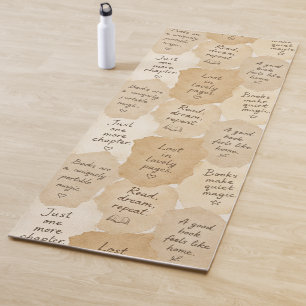 Books are
a uniquely
portable
magic.
Read,
dream,
repeat.
A good
book
feels like
home.
Just
one
more
chapter.
Lost
in
lovely
pages.
Books
make
quiet
magic.
Books are
a uniquely
portable
magic.
Read,
dream,
repeat.
A good
book
feels like
home.
Just
one
more
chapter.
Lost
in
lovely
pages.
Books
make
quiet
magic.
Books are
a uniquely
portable
magic.
Read,
dream,
repeat.
A good
book
feels like
home.
Just
one more
chapter.
Lost